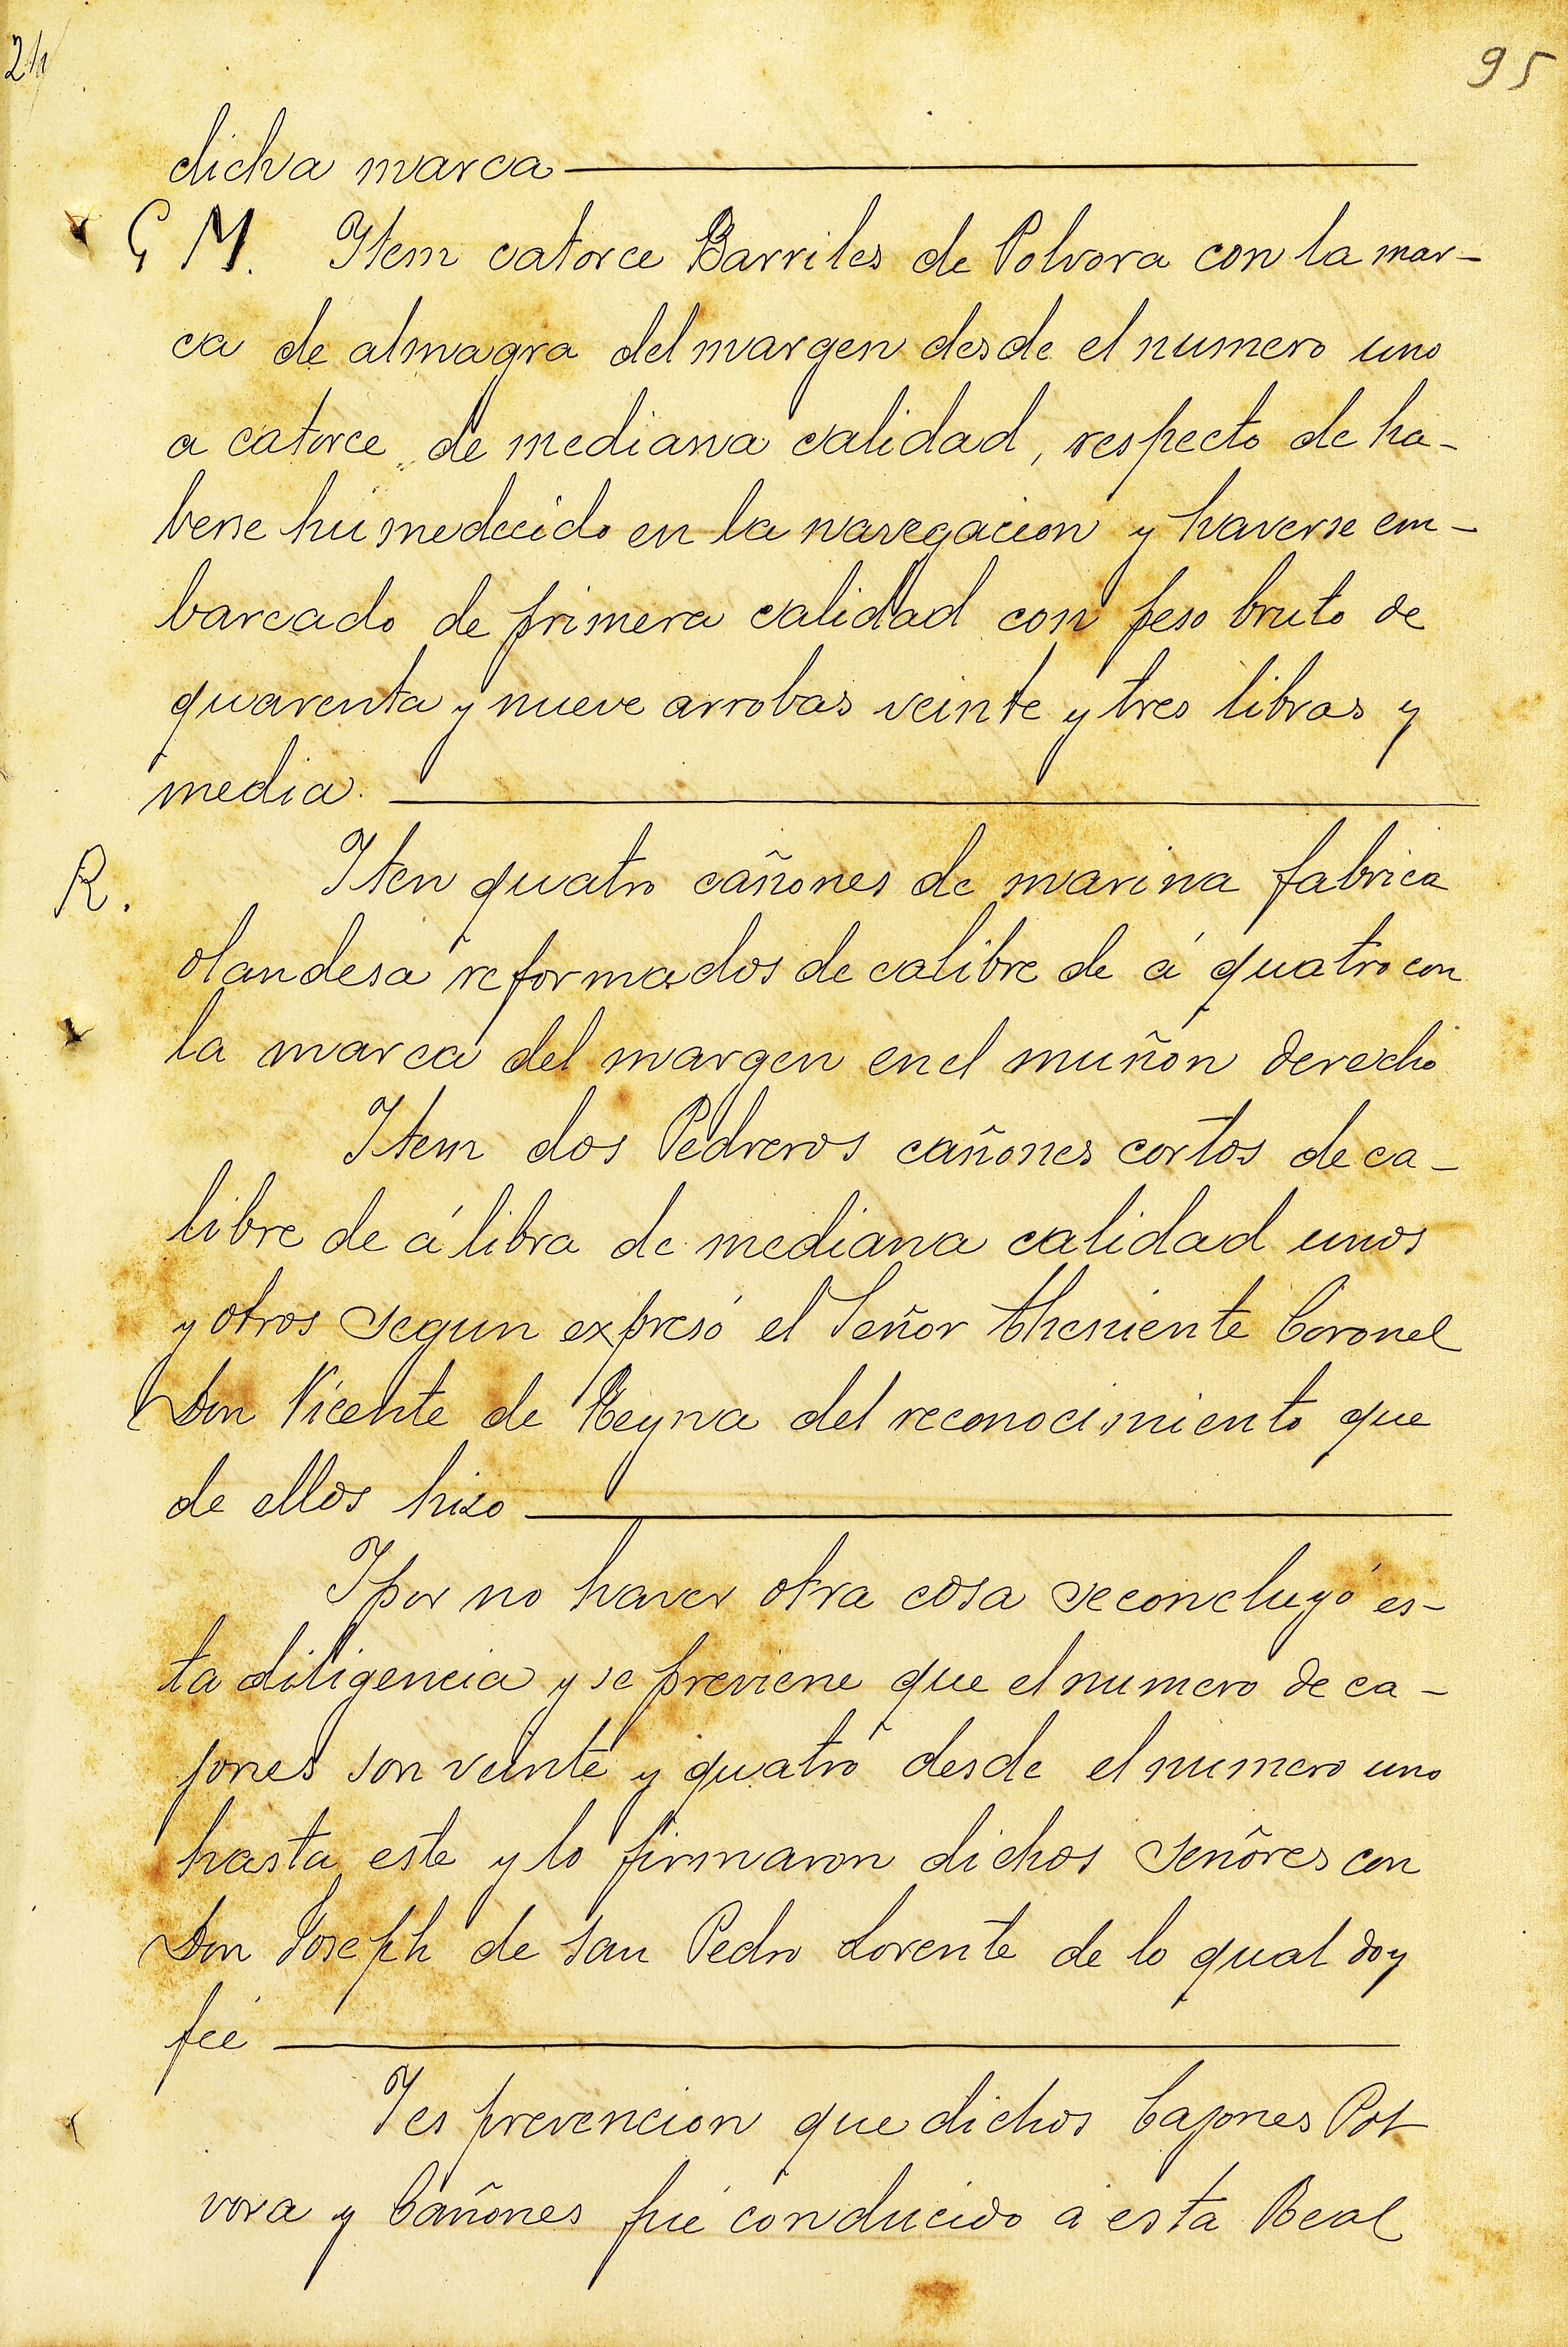 95
dicha marca
G M. Item catorce Barriles de Polvora con la mar-
ca de almagra del margen desde el numero uno
a catorce de mediana calidad, respecto de ha-
berse humedecido en la navegacion y haverse em-
barcado de primera calidad con peso bruto de
quarenta y nueve arrobas veinte y tres libras y
media.
R. Iten quatro cañones de marina fabrica
olandesa reformados de calibre de á quatro con
la marca del margen en el muñon derecho
Item dos Pedreros cañones cortos de ca-
libre de á libra de mediana calidad unos
y otros segun expresó el Señor Theniente Coronel
Don Vicente de Reyna del reconocimiento que
de ellos hizo
Y por no haver otra cosa se concluyó es-
ta diligencia y se previene que el numero de ca-
jones son veinte y quatro desde el numero uno
hasta este y lo firmaron dichos señores con
Don Joseph de San Pedro Lorente de lo qual doy
feé
Y es prevencion que dichos Cajones Pol
vora y Cañones fué conducido á esta Real